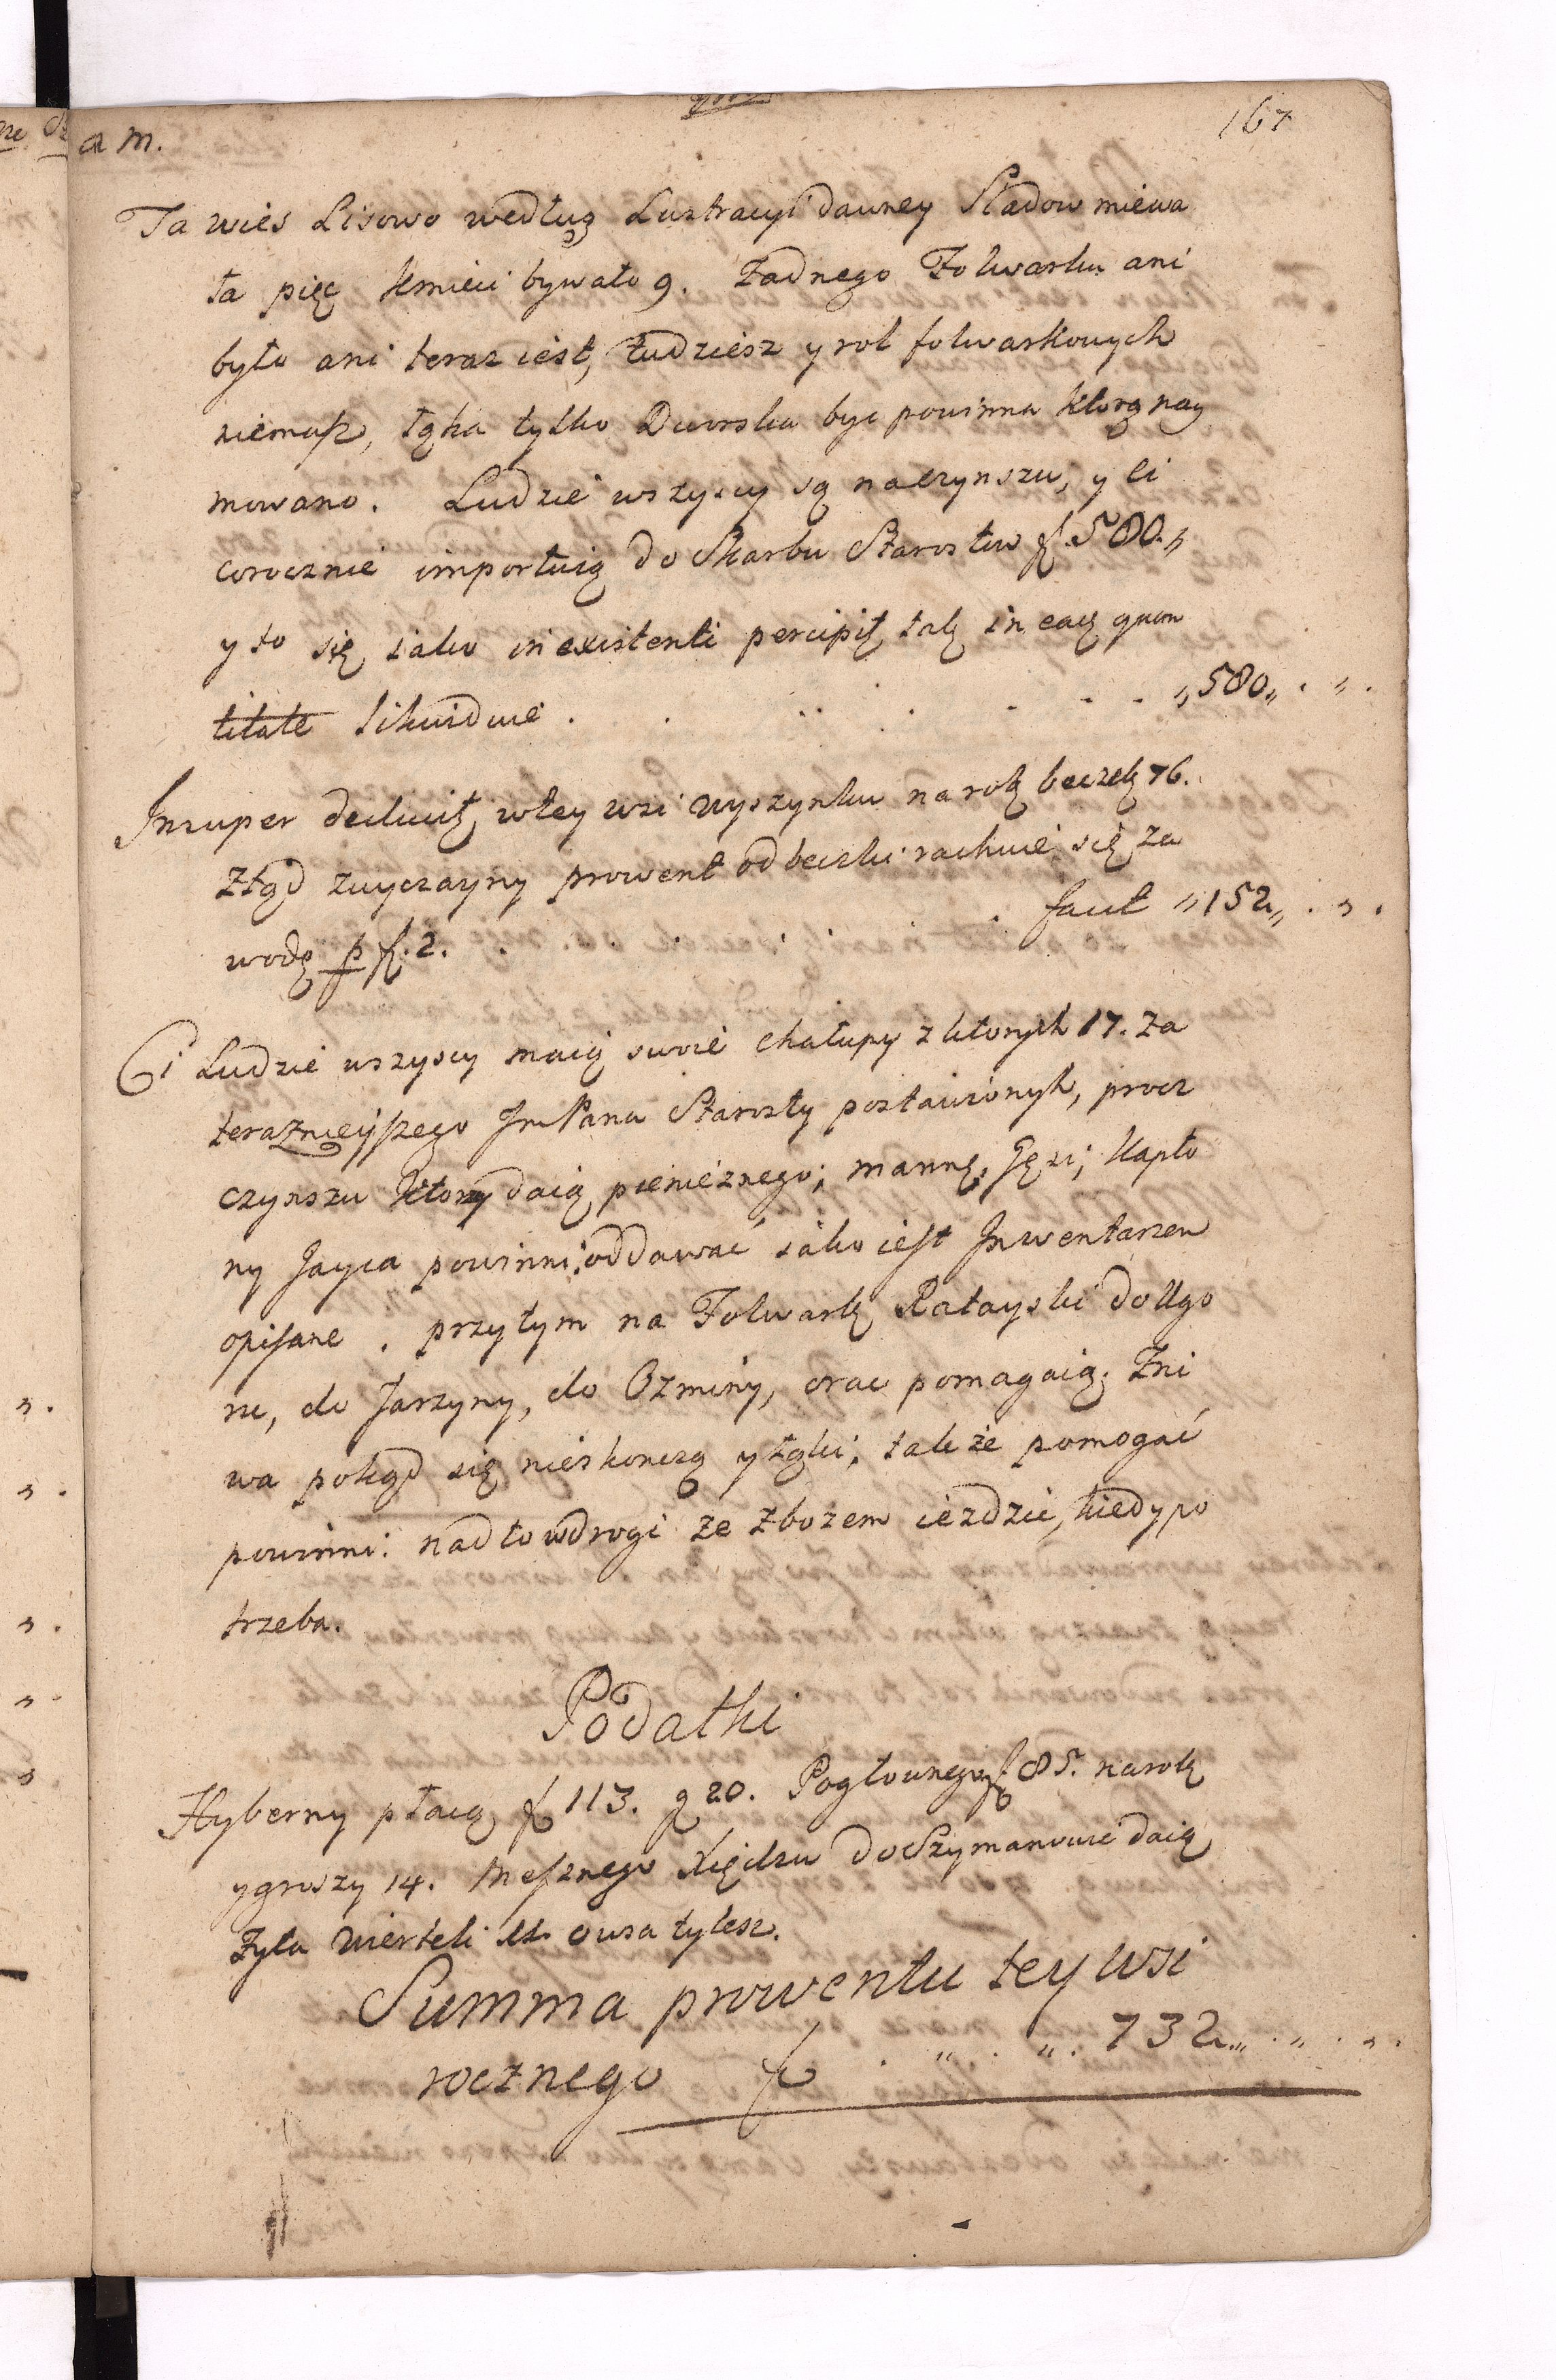 167
a m.
Ta wies Lisowo według Lustracyi dawney Sladow miewa
ła pięc kmieci bywało 9. Zadnego Folwarku ani
było ani teraz iest, tudziesz y rol folwarkowych
niemasz, łąka tylko Dworska byc powinna ktorą nay
mowano. Ludzie wszyscy są naczynszu, y ci
corocznie importuią do Skarbu Starostw f. 580.„
y to się iako in existenti percipit, tak in eaq quan
titate likwiduie . . . . . . . „580„ . „ .
Insuper deducit, wtey wsi wyszynku na rok beczek 76.
ztąd zwyczayny prowent od beczki rachuie się za
wodę p f. 2. . . . . . facit „152„ . „ .
Ci Ludzie wszyscy maią swoie chałupy z ktorych 17. za
teraznieyszego Jm Pana Starosty postawionych, procz
czynszu ktory daią pienieznego; mannę, Gęsi, Kapło
ny Jayca powinni oddawać iako iest Inwentarzem
opisane . przytym na Folwark Ratayski do Ugo
ru, do Jarzyny, do Ozminy, orac pomagaią. Zni
wa pokąd się nieskonczą y łąki, takze pomogać
powinni: nadto wdrogi ze zbozem iezdzic, kiedy po
trzeba.
Podatki
Hyberny płacą f 113. g 20. Pogłownego f 85. narok
y groszy 14. Mesznego Xiędzu do Szymanowic daią
Zyta Wierteli owsa tylesz.
Summa prowentu tey wsi
rocznego f . „ . „ . 732„ . „ . „ .